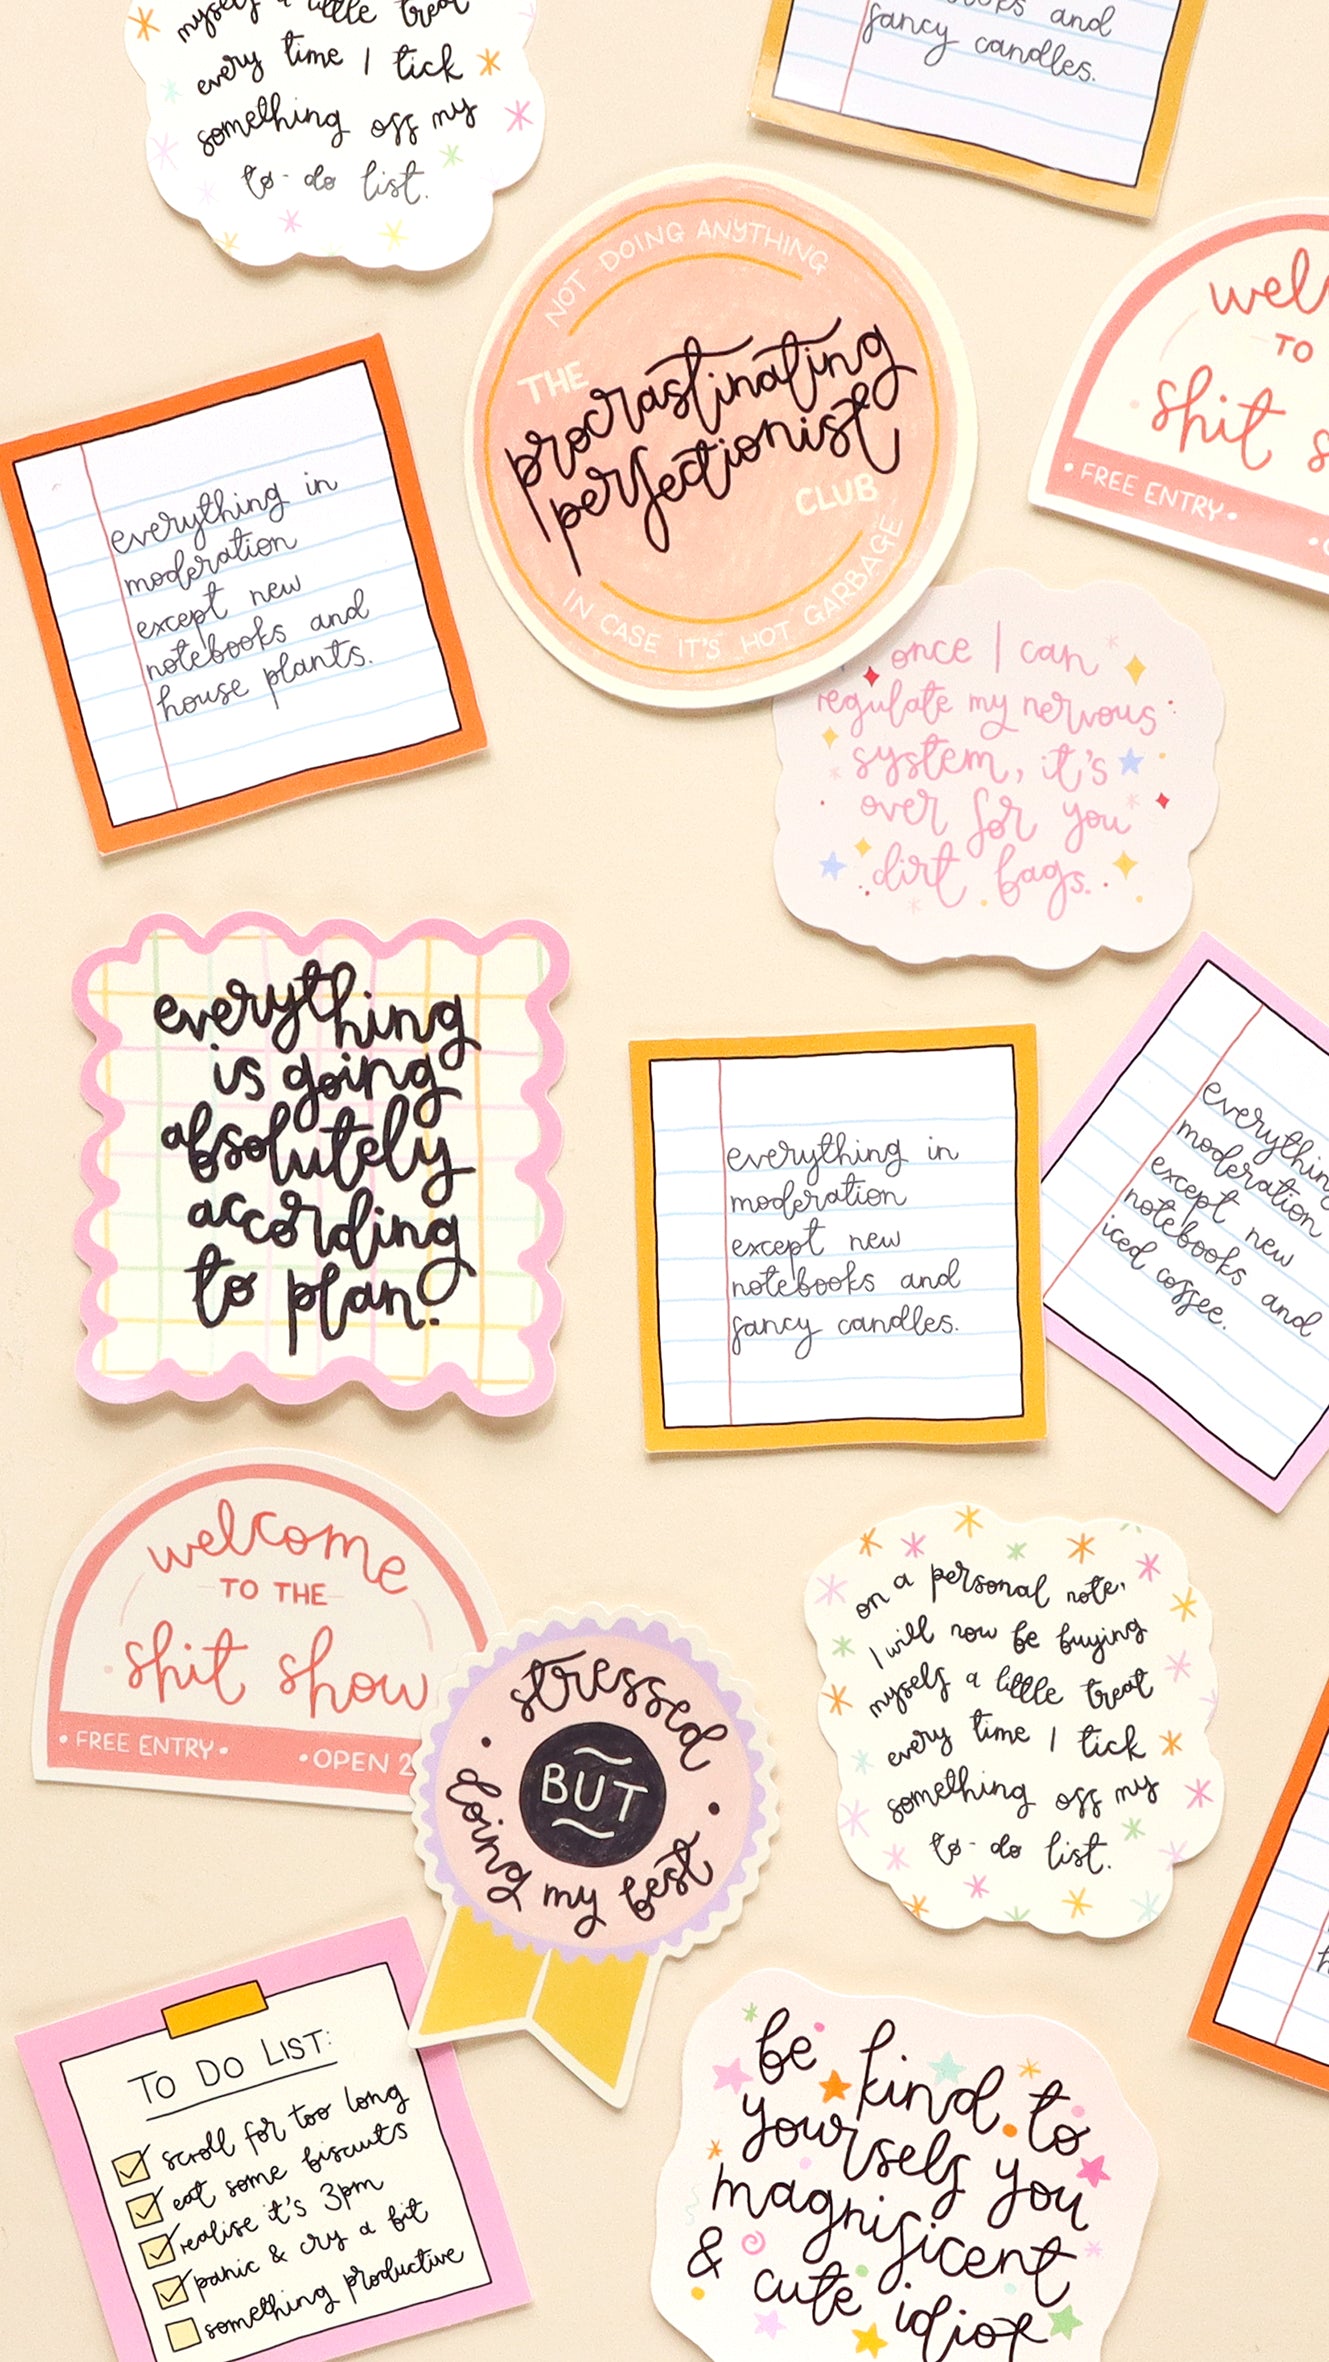 myself a little treat
every time I tick
something off my
to-do list.
and
fancy candles.
NOT DOING ANYTHING
THE
procrastinating
perfectionist
CLUB
IN CASE IT'S HOT GARBAGE
TO
shit
• FREE ENTRY •
everything in
moderation
except new
notebooks and
house plants.
once I can
regulate my nervous
system, it's
over for you
dirt bags.
everything
is going
absolutely
according
to plan.
everything in
moderation
except new
notebooks and
fancy candles.
everything
moderation
except new
notebooks and
iced coffee.
welcome
TO THE
shit show
• FREE ENTRY • • OPEN 2
stressed
BUT
doing my best
on a personal note,
I will now be buying
myself a little treat
every time I tick
something off my
to-do list.
TO DO LIST:
scroll for too long
eat some biscuits
realise it's 3pm
panic & cry a bit
something productive
be kind to
yourself you
magnificent
& cute idiot